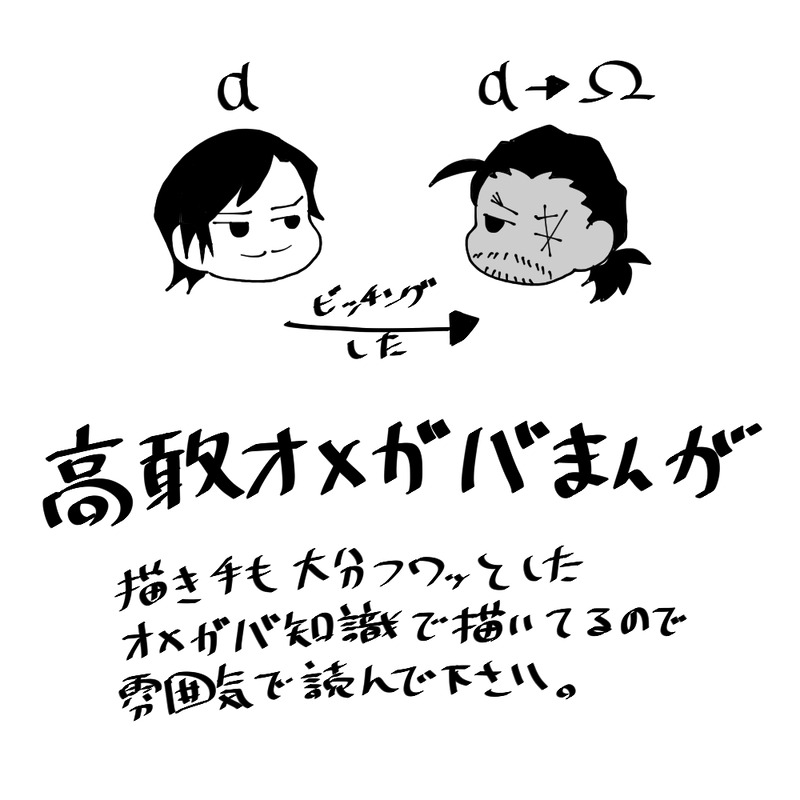 α
α→Ω
ビッチング
した
高敢オメガバまんが
描き手も大分フワッとした
オメガバ知識で描いてるので
雰囲気で読んで下さい。